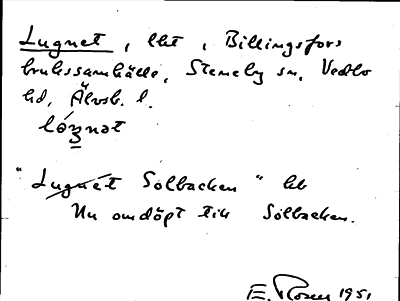 Lugnet, lht, Billingsfors
brukssamhälle, Steneby sn, Vedbo
hd, Älvsb. l.
lóʒnət
"Lugnet Solbacken" lht
Nu omdöpt till Solbacken.
E. Rosen 1951